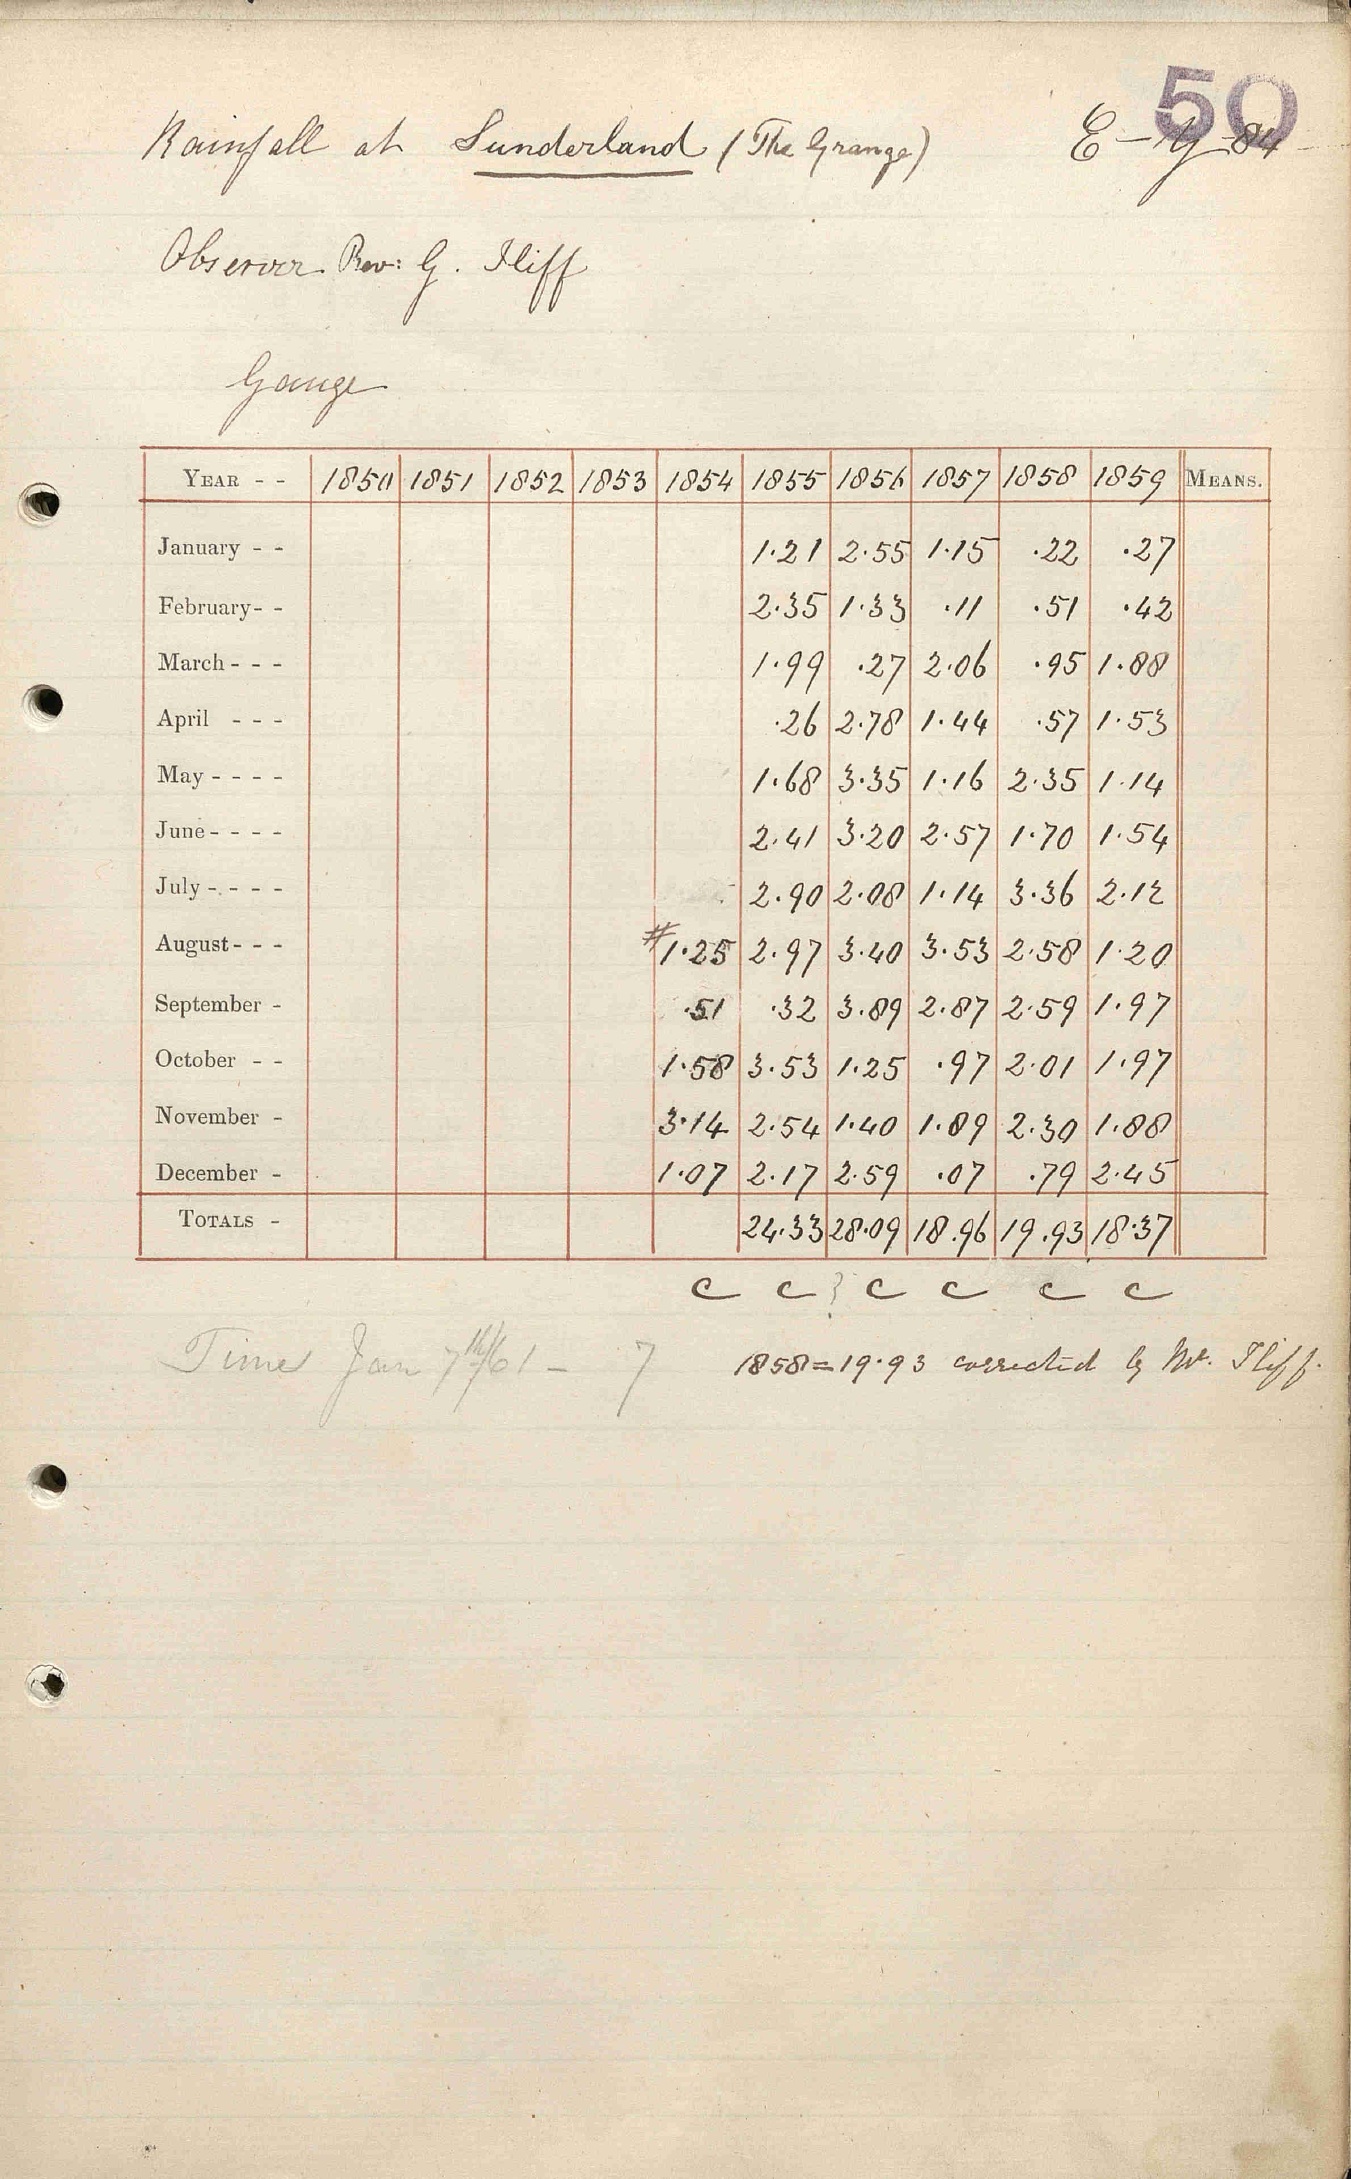 50
Rainfall at Sunderland (The Grange) E-y-84
Observer Rev: G. Iliff
Gauge
YEAR - - 1850 1851 1852 1853 1854 1855 1856 1857 1858 1859 MEANS.
January - - 1.21 2.55 1.15 .22 .27
February - - 2.35 1.33 .11 .51 .42
March - - - 1.99 .27 2.06 .95 1.88
April - - - .26 2.78 1.44 .57 1.53
May - - - - 1.68 3.35 1.16 2.35 1.14
June - - - - 2.41 3.20 2.57 1.70 1.54
July - - - - 2.90 2.08 1.14 3.36 2.12
August - - - #1.25 2.97 3.40 3.53 2.58 1.20
September - .51 .32 3.89 2.87 2.59 1.97
October - - 1.58 3.53 1.25 .97 2.01 1.97
November - 3.14 2.54 1.40 1.89 2.30 1.88
December - 1.07 2.17 2.59 .07 .79 2.45
TOTALS - 24.33 28.09 18.96 19.93 18.37
C C ? C C C C
Times Jan 7th/61 - 7 1858 = 19.93 corrected by Mr. Iliff.